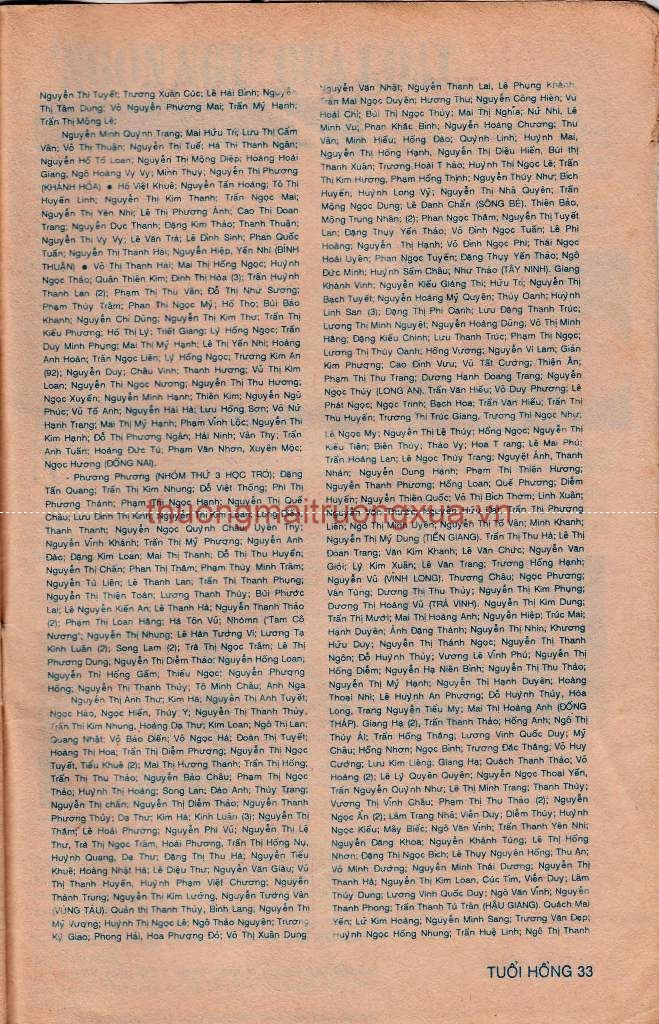 Nguyễn Thị Tuyết; Trương Xuân Cúc; Lê Hải Bình; Nguyễn
Thị Tâm Dung; Võ Nguyễn Phương Mai; Trần Mỹ Hạnh;
Trần Thị Mộng Lê;
Nguyễn Minh Quỳnh Trang; Mai Hữu Trí; Lưu Thị Cẩm
Vân; Võ Thị Thuận; Nguyễn Thị Tuế; Hà Thị Thanh Ngân;
Nguyễn Hồ Tố Loan; Nguyễn Thị Mộng Diệp; Hoàng Hoài
Giang, Ngô Hoàng Vy Vy; Minh Thùy; Nguyễn Thị Phương
(KHÁNH HÒA) ● Hồ Việt Khuê; Nguyễn Tấn Hoàng; Tô Thị
Huyền Linh; Nguyễn Thị Kim Thanh; Trần Ngọc Mai;
Nguyễn Thị Yên Nhi; Lê Thị Phương Ánh; Cao Thị Đoan
Trang; Nguyễn Dục Thanh; Đặng Kim Thảo; Thanh Thuận;
Nguyễn Thị Vy Vy; Lê Văn Trá; Lê Đình Sinh; Phan Quốc
Tuấn; Nguyễn Thị Thanh Hai; Nguyễn Hiệp, Yến Nhi (BÌNH
THUẬN) ● Võ Thị Thanh Hải; Mai Thị Hồng Ngọc; Huỳnh
Ngọc Thảo; Quân Thiên Kim; Đinh Thị Hóa (3); Trần Huỳnh
Thanh Lan (2); Phạm Thị Thu Vân; Đỗ Thị Như Sương;
Phạm Thúy Trâm; Phan Thị Ngọc Mỹ; Hồ Thọ; Bùi Bảo
Khanh; Nguyễn Chí Dũng; Nguyễn Thị Kim Thư; Trần Thị
Kiều Phương; Hồ Thị Lý; Triết Giang; Lý Hồng Ngọc; Trần
Duy Minh Phụng; Mai Thị Mỹ Hạnh; Lê Thị Yến Nhi; Hoàng
Anh Hoàn; Trần Ngọc Liên; Lý Hồng Ngọc; Trương Kim An
(92); Nguyễn Duy; Châu Vinh; Thanh Hương; Vũ Thị Kim
Loan; Nguyễn Thị Ngọc Nương; Nguyễn Thị Thu Hương;
Ngọc Xuyến; Nguyễn Minh Hạnh; Thiên Kim; Nguyễn Ngũ
Phúc; Vũ Tố Anh; Nguyễn Hải Hà; Lưu Hồng Sơn; Võ Nữ
Hạnh Trang; Mai Thị Mỹ Hạnh; Phạm Vĩnh Lộc; Nguyễn Thị
Kim Hạnh; Đỗ Thị Phương Ngân; Hải Ninh; Vân Thy; Trần
Anh Tuấn; Hoàng Đức Tú; Phạm Văn Nhơn, Xuyên Mộc;
Ngọc Hương (ĐỒNG NAI).
- Phương Phương (NHÓM THỨ 3 HỌC TRÒ); Đặng
Tấn Quang; Trần Thị Kim Nhung; Đỗ Việt Thống; Phi Thị
Phương Thành; Phạm Thị Ngọc Hạnh; Nguyễn Thị Quế
Châu; Lưu Đinh Thị Kim
Thanh Thanh; Nguyễn Ngọc Quỳnh Châu; Uyên Thy;
Nguyễn Vĩnh Khánh; Trần Thị Mỹ Phương; Nguyễn Anh
Đào; Đặng Kim Loan; Mai Thị Thanh; Đỗ Thị Thu Huyền;
Nguyễn Thị Chấn; Phan Thị Thâm; Phạm Thúy Minh Trâm;
Nguyễn Tú Liên; Lê Thanh Lan; Trần Thị Thanh Phụng;
Nguyễn Thị Thiện Toàn; Lương Thanh Thúy; Bùi Phước
Lai; Lê Nguyễn Kiến An; Lê Thanh Hà; Nguyễn Thanh Thảo
(2); Phạm Thị Loan Hằng; Hà Tôn Vũ; Nhómn ("Tam Cô
Nương"; Nguyễn Thị Nhung; Lê Hàn Tường Vi; Lương Tạ
Kinh Luân (2); Song Lam (2); Trà Thị Ngọc Trâm; Lê Thị
Phương Dung; Nguyễn Thị Diễm Thảo; Nguyễn Hồng Loan;
Nguyễn Thị Hồng Gấm; Thiếu Ngọc; Nguyễn Phương
Hồng; Nguyễn Thị Thanh Thúy; Tô Minh Châu; Anh Nga
Nguyễn Thị Anh Thư; Kim Hà; Nguyễn Thị Anh Tuyết;
Ngọc Hảo, Ngọc Hiển, Thúy Y; Nguyễn Thị Thanh Thúy,
Trần Thị Kim Nhung, Hoàng Dạ Thư; Kim Loan; Ngô Thị Lan;
Quang Nhật; Võ Bảo Điền; Võ Ngọc Hà; Đoàn Thị Tuyết;
Hoàng Thị Hoa; Trần Thị Diễm Phượng; Nguyễn Thị Ngọc
Tuyết, Tiểu Khuê (2); Mai Thị Hương Thanh; Trần Thị Hồng,
Trần Thị Thu Thảo; Nguyễn Bảo Châu; Phạm Thị Ngọc
Thảo; Huỳnh Thị Hoàng; Song Lan; Đào Anh; Thùy Trang;
Nguyễn Thị chấn; Nguyễn Thị Diễm Thảo; Nguyễn Thanh
Phương Thủy; Dạ Thư; Kim Hà; Kinh Luân (3); Nguyễn Thị
Thắm; Lê Hoài Phương; Nguyễn Phi Vũ; Nguyễn Thị Lệ
Thư, Trà Thị Ngọc Trâm, Hoài Phương, Trần Thị Hồng Nụ,
Huỳnh Quang, Dạ Thư; Đặng Thị Thu Hà; Nguyễn Tiểu
Khuê; Hoàng Nhật Hà; Lê Diệu Thư; Nguyễn Văn Giàu; Vũ
Thị Thanh Huyền, Huỳnh Phạm Việt Chương; Nguyễn
Thành Trung; Nguyễn Thị Kim Lường, Nguyễn Tường Vân
(VŨNG TÀU). Quân thị Thanh Thủy, Bình Lang; Nguyễn Thị
Mỹ Vương; Huỳnh Thị Ngọc Lê; Ngô Thảo Nguyên; Trương
Ký Giao; Phong Hải, Hoa Phượng Đỏ; Võ Thị Xuân Dung;
Nguyễn Văn Nhật; Nguyễn Thanh Lai, Lê Phụng Khánh,
Trần Mai Ngọc Duyên; Hương Thu; Nguyễn Công Hiến; Vũ
Hoài Chi; Bùi Thị Ngọc Thúy; Mai Thị Nghĩa; Nữ Nhi, Lê
Minh Vu; Phan Khắc Bình; Nguyễn Hoàng Chương; Thu
Vân; Minh Hiếu; Hồng Đào; Quỳnh Linh; Huỳnh Mai,
Nguyễn Thị Hồng Hạnh, Nguyễn Thị Diệu Hiền, Bùi thị
Thanh Xuân; Trương Hoài T hảo; Huỳnh Thị Ngọc Lê; Trần
Thị Kim Hương, Phạm Hồng Thịnh; Nguyễn Thúy Như; Bích
Huyền; Huỳnh Long Vỹ; Nguyễn Thị Nhã Quyên; Trần
Mộng Ngọc Dung; Lê Danh Chẩn (SÔNG BÉ). Thiên Bảo,
Mộng Trung Nhân; (2); Phan Ngọc Thâm, Nguyễn Thị Tuyết
Lan; Đặng Thụy Yên Thảo; Võ Đình Ngọc Tuấn; Lê Phi
Hoàng; Nguyễn Thị Hạnh; Võ Đình Ngọc Phi; Thái Ngọc
Hoài Uyên; Phan Ngọc Tuyến; Đặng Thụy Yến Thảo; Ngô
Đức Minh; Huỳnh Sẩm Châu; Như Thảo (TÂY NINH). Giang
Khánh Vinh; Nguyễn Kiều Giáng Thi; Hữu Trí; Nguyễn Thị
Bạch Tuyết; Nguyễn Hoàng Mỹ Quyên; Thúy Oanh; Huỳnh
Linh San (3); Đặng Thị Phi Oanh; Lưu Đặng Thanh Trúc;
Lương Thị Minh Nguyệt; Nguyễn Hoàng Dũng; Võ Thị Minh
Hằng; Đặng Kiều Chinh; Lưu Thanh Trúc; Phạm Thị Ngọc;
Lương Thị Thúy Oanh; Hồng Vương; Nguyễn Vi Lam; Giản
Kim Phượng; Cao Đinh Vưu; Vũ Tất Cường; Thiện Ân;
Phạm Thị Thu Trang; Dương Hạnh Đoang Trang; Nguyễn
Ngọc Thủy (LONG AN). Trần Văn Hiếu; Võ Duy Phương; Lê
Phát Ngọc; Ngọc Trinh; Bạch Hoa; Trần Văn Hiếu; Trần Thị
Thu Huyền; Trương Thị Trúc Giang, Trương Thị Ngọc Như;
Lê Ngọc My; Nguyễn Thị Lệ Thúy; Hồng Ngọc; Nguyễn Thị
Kiều Tiên; Biên Thùy; Thảo Vy; Hoa T rang; Lê Mai Phú;
Trần Hoàng Lan; Lê Ngọc Thúy Trang; Nguyệt Ánh, Thanh
Nhân; Nguyễn Dung Hạnh; Phạm Thị Thiện Hương;
Nguyễn Thanh Phương; Hồng Loan; Quế Phương; Diễm
Huyền; Nguyễn Thiên Quốc; Võ Thị Bích Thơm; Linh Xuân;
Trần Thị Phương
Liên; Ngô Thị Mai Uyên; Nguyễn Thị Vân; Minh Khanh;
Nguyễn Thị Mỹ Dung (TIỀN GIANG). Trần Thị Thu Hà; Lê Thị
Đoan Trang; Văn Kim Khanh; Lê Văn Chức; Nguyễn Văn
Giỏi; Lý Kim Xuân; Lê Vân Trang; Trương Hồng Hạnh;
Nguyễn Vũ (VĨNH LONG). Thương Châu; Ngọc Phương;
Vân Tùng; Dương Thị Thu Thủy; Nguyễn Thị Kim Phụng;
Dương Thị Hoàng Vũ (TRÀ VINH). Nguyễn Thị Kim Dung;
Trần Thị Mười; Mai Thị Hoàng Anh; Nguyên Hiệp; Trúc Mai;
Hạnh Duyên; Ánh Đặng Thành; Nguyễn Thị Nhịn, Khương
Hữu Duy; Nguyễn Thị Thành Ngọc; Nguyễn Thị Thanh
Ngôn; Đỗ Huỳnh Thủy; Vương Lê Vĩnh Phú; Nguyễn Thị
Hồng Diễm; Nguyễn Hạ Niên Bình; Nguyễn Thị Thu Thảo;
Nguyễn Thị Mỹ Hạnh; Nguyễn Thị Hạnh Duyên; Hoàng
Thoại Nhi; Lê Huỳnh An Phượng; Đỗ Huỳnh Thủy, Hỏa
Long, Trang Nguyễn Tiểu My; Mai Thị Hoàng Anh (ĐỒNG
THÁP). Giang Hạ (2), Trần Thanh Thảo; Hồng Anh; Ngô Thị
Thúy Ái; Trần Hồng Thắng; Lương Vinh Quốc Duy; Mỹ
Châu; Hồng Nhơn; Ngọc Bình; Trương Đắc Thắng; Võ Huy
Cường; Lưu Kim Liêng; Giang Hạ; Quách Thanh Thảo; Võ
Hoàng (2); Lê Lý Quyên Quyên; Nguyễn Ngọc Thoại Yến,
Trần Nguyễn Quỳnh Như; Lê Thị Minh Trang; Thanh Thúy;
Vương Thị Vĩnh Châu; Phạm Thị Thu Thảo (2); Nguyễn
Ngọc Ấn (2); Lâm Trang Nhã; Viễn Duy; Diễm Thúy; Huỳnh
Ngọc Kiều; Mây Biếc; Ngô Văn Vĩnh; Trần Thanh Yên Nhi;
Nguyễn Đăng Khoa; Nguyễn Khánh Tùng; Lê Thị Hồng
Nhơn; Đặng Thị Ngọc Bích; Lê Thụy Nguyên Hồng; Thu An;
Võ Minh Dương; Nguyễn Minh Thái Dương; Nguyễn Thị
Thanh Hà; Nguyễn Thị Kim Loan, Cúc Tím, Viễn Duy; Lâm
Thùy Dung; Lương Vinh Quốc Duy; Ngô Văn Vĩnh; Nguyễn
Thanh Phong; Trần Thanh Tú Trân (HẬU GIANG). Quách Mai
Yến; Lữ Kim Hoàng; Nguyễn Minh Sang; Trương Văn Đẹp;
Huỳnh Ngọc Hồng Nhung; Trần Huệ Linh; Ngô Thị Thanh
thuongmaitruongxua.vn
TUỔI HỒNG 33